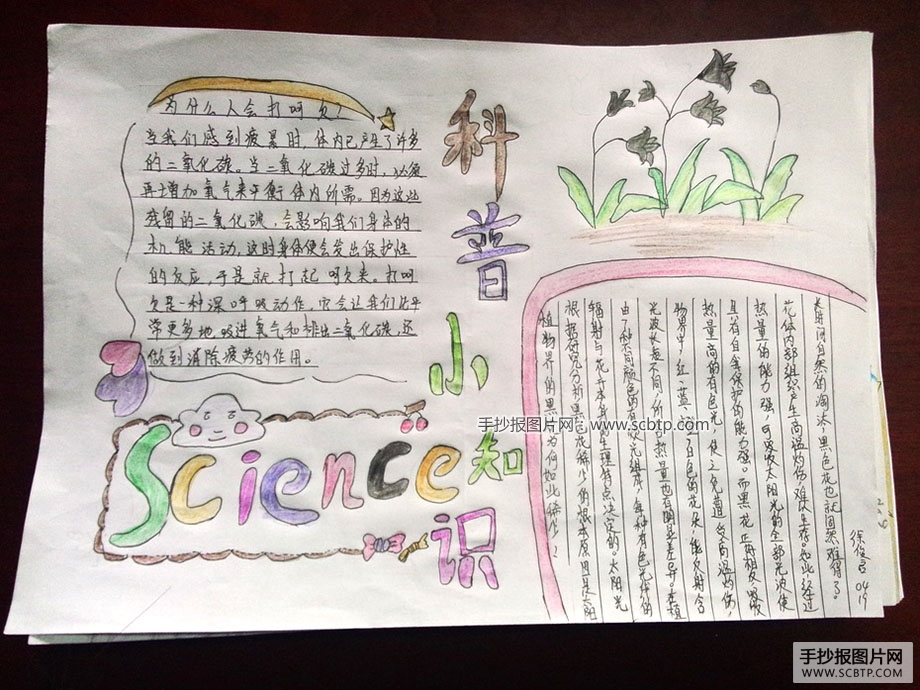 为什么人会打呵欠?
当我们感到疲累时,体内已产生了许多
的二氧化碳。当二氧化碳过多时,必须
再增加氧气来平衡体内所需。因为这些
残留的二氧化碳,会影响我们身体的
机能活动,这时身体便会发出保护性
的反应,于是就打起呵欠来。打呵
欠是一种深呼吸动作,它会让我们比平
常更多地吸进氧气和排出二氧化碳,还
做到消除疲劳的作用。
科普小知识
Science
植物界的黑花为何如此稀少?
根据研究分析黑色花稀少的根本原因是阳
辐射与花卉本身的生理特点决定的。太阳光
由7种不同颜色的有效光组成,每种有色光体的
光波长短不同,所含热量也有明显差异。在植
物界中,红、蓝、白色的花朵能反射含
热量高的有色光,使之免遭受高温灼伤,
具有自我保护的能力强。而黑花正好相反吸收
热量的能力强,可吸收太阳光的全部光波使
花体内部组织产生高温灼伤难以生存。如此经过
长时间自然的淘汰,黑色花也就固然难得了。
徐俊 0419
手抄报图片网 www.scbtp.com
手抄报图片网
WWW.SCBTP.COM